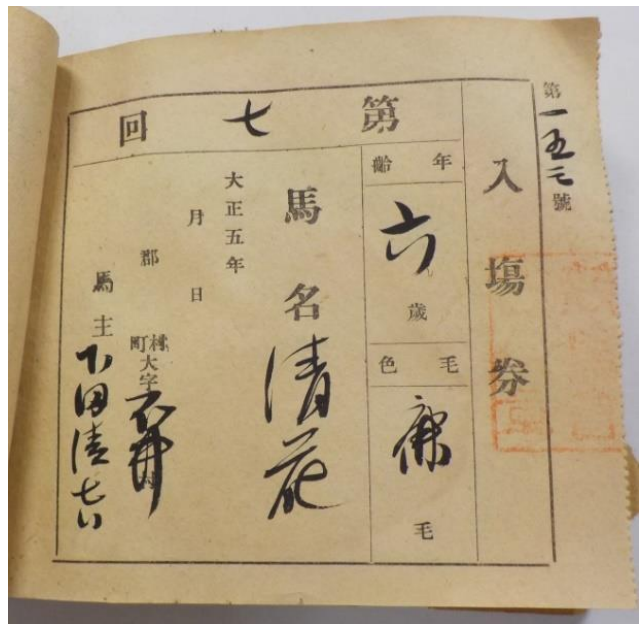 第一五三號
入塲券
第七回
年齡
六歲
毛色
鹿毛
馬名 清花
大正五年
月 日
郡 村町大字 石井
馬主 下田清七